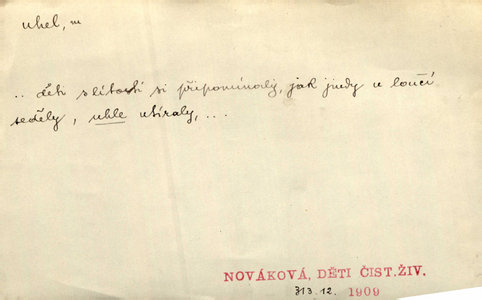 uhel, m
.. děti s lítostí si připomínaly, jak jindy u loučí
seděly, uhle utíraly, ...
NOVÁKOVÁ, DĚTI ČIST.ŽIV.
313.12. 1909